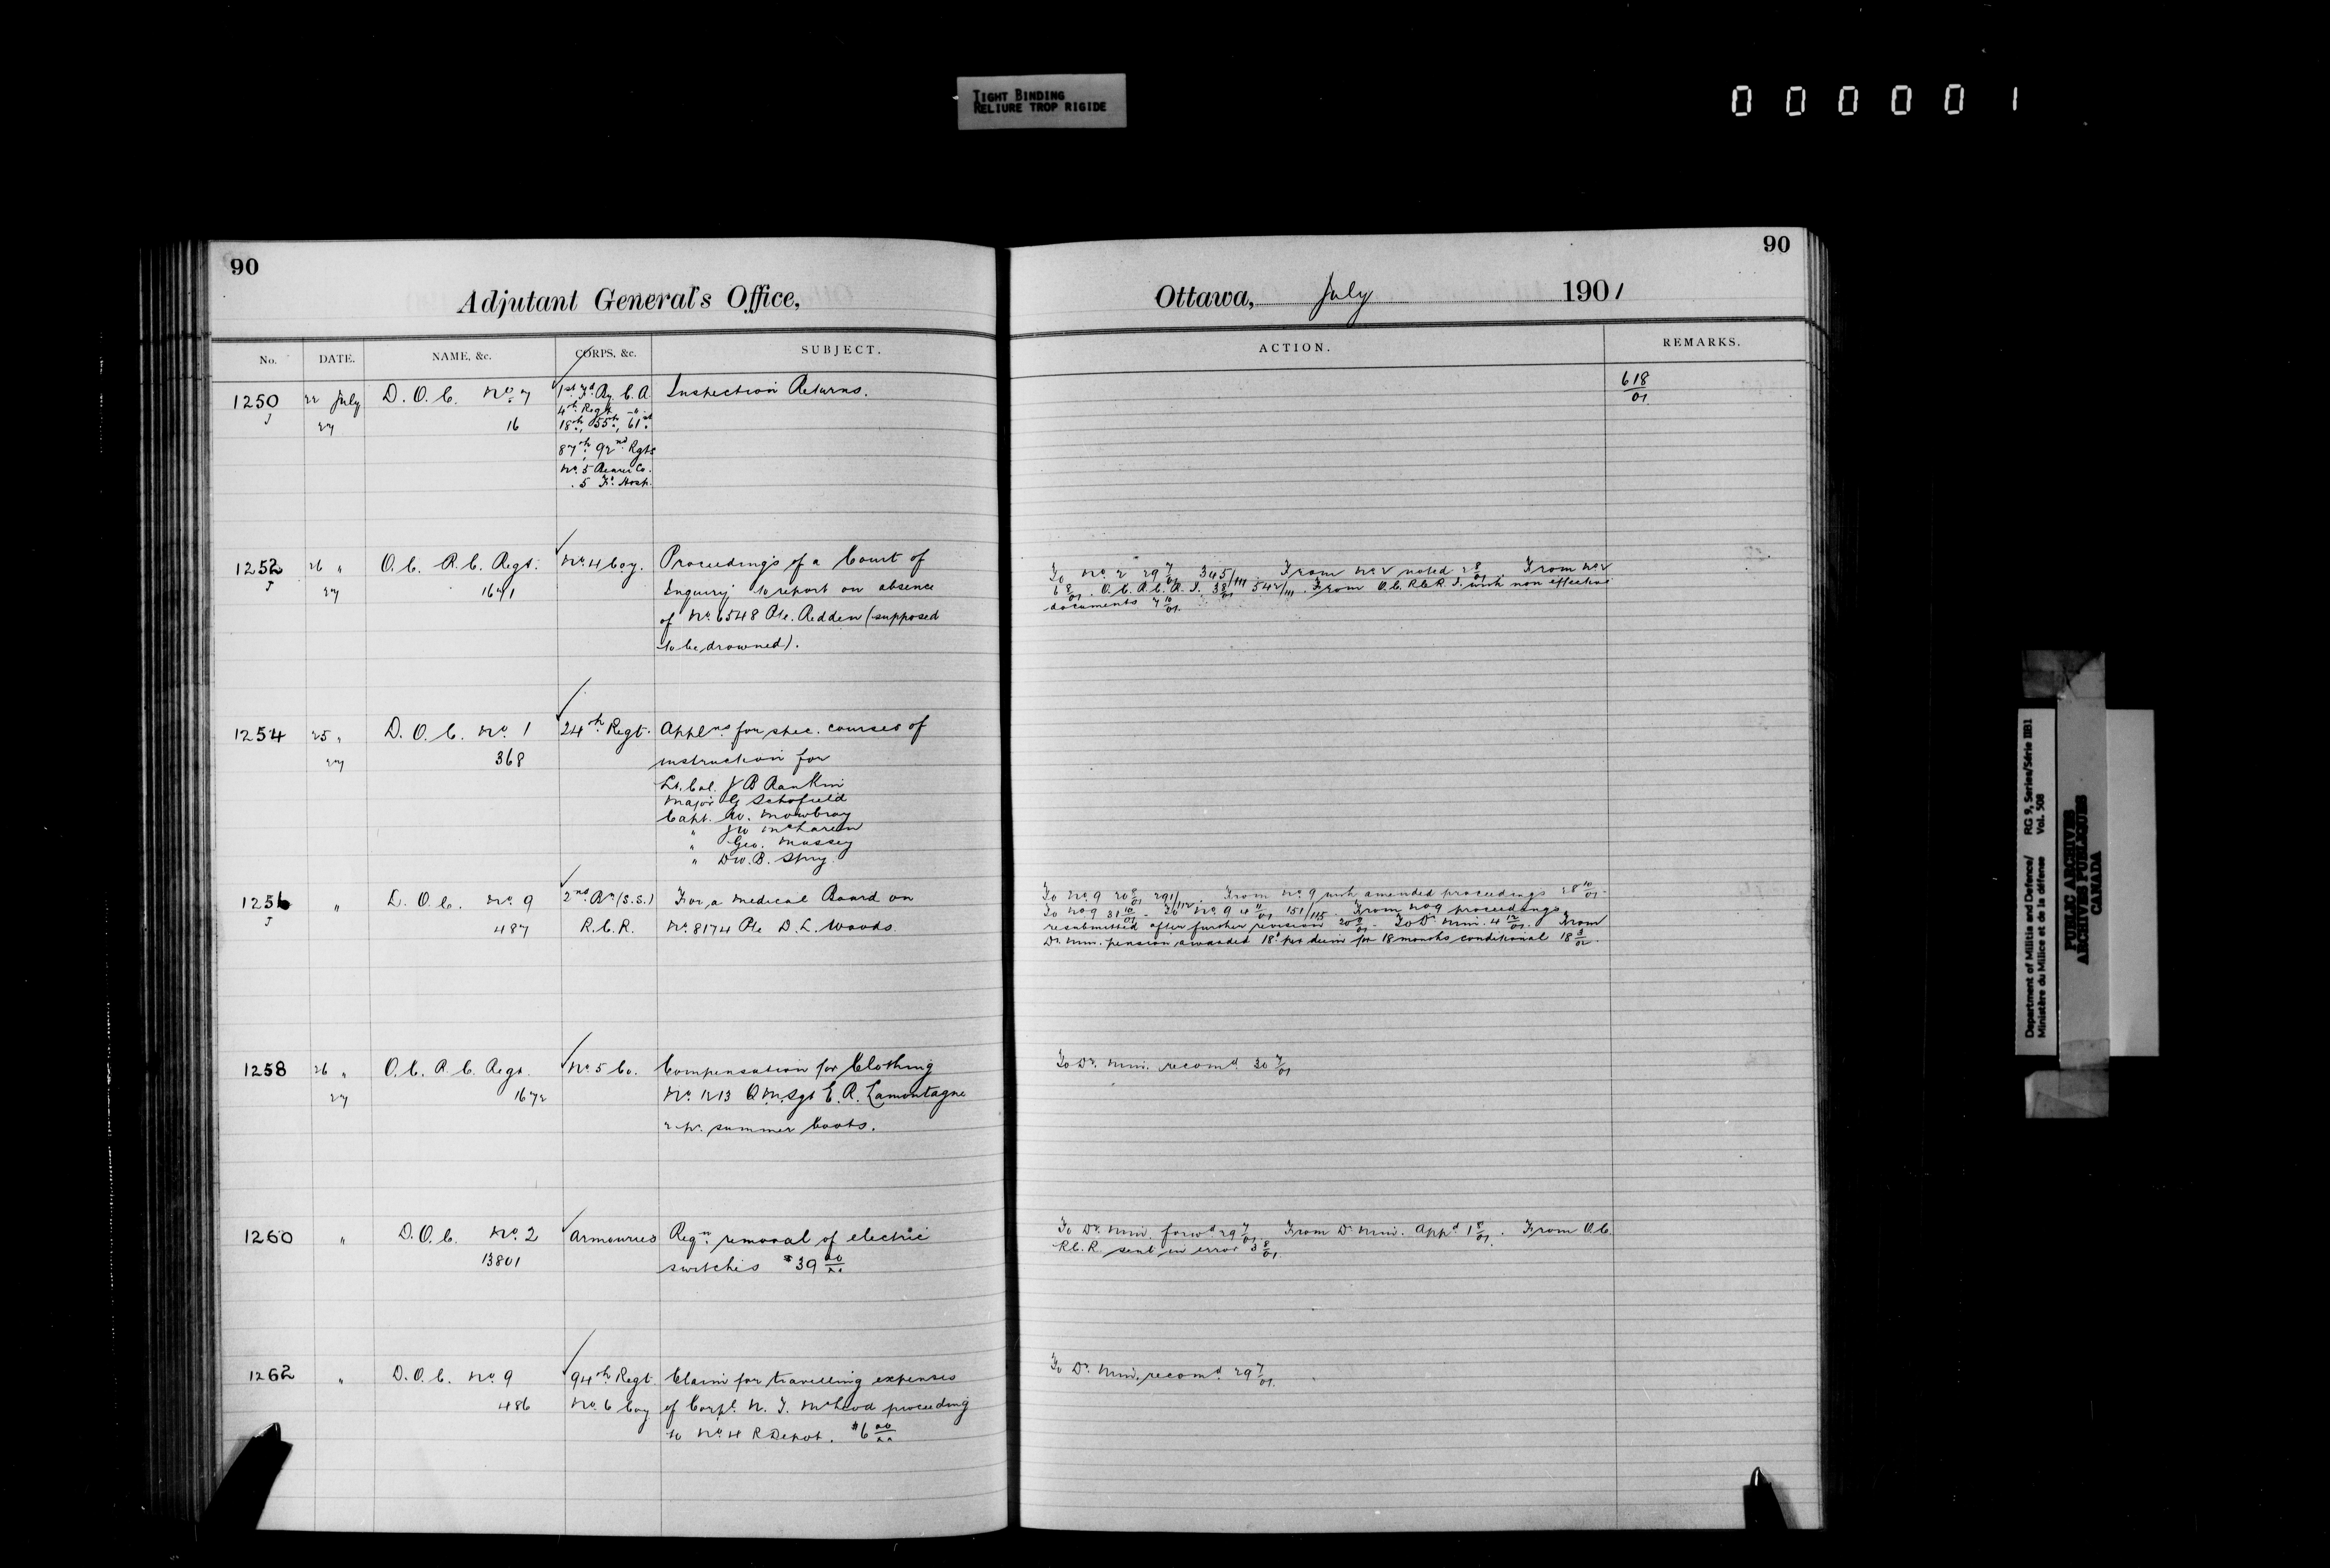 TIGHT BINDING
RELIURE TROP RIGIDE
000001
90
90
Adjutant General's Office,
Ottawa, July 1901
No. DATE. NAME, &c. CORPS, &c. SUBJECT. ACTION. REMARKS.
1250 22 July D. O. C. No. 7 1st Fd. By. C. A Inspection Returns. 618/01
J 27 16 4th Regt. -"-
18th, 55th, 61st
87th, 92nd Rgts
No. 5 Bearer Co.
" 5 Fd. Hosp.
1252 26 " O. C. R. C. Regt. No. 4 Coy. Proceedings of a Court of
J 27 1671 Inquiry to report on absence
of No. 6548 Pte. Redden (supposed
to be drowned).
To No. 2 29 7/01 345/111. From No. 2 noted 2 8/01. From No. 2
6 8/01. O. C. R. C. R. I. 3 8/01 542/111. From O. C. R. C. R. I. with non effective
documents 7 10/01.
1254 25 " D. O. C. No. 1 24th Regt. Applns for spec. courses of
27 368 instruction for
Lt. Col. J B Rankin
Major G Schofield
Capt. W. Mowbray
" JW McLaren
" Geo. Massey
" D.W.B. Spry
1256 " D. O. C. No. 9 2nd Bn (S.S.) For a Medical Board on
J 487 R. C. R. No. 8174 Pte D. L. Woods.
To No. 9 20 8/01 291/112. From No. 9 with amended proceedings 28 10/01.
To No 9 31 10/01. To No. 9 4 11/01 151/115. From No 9 proceedings
resubmitted after further revision 20 11/01. To Dr. Min. 4 12/01. From
Dr. Min. pension awarded 18d per diem for 18 months conditional 18 3/02.
1258 26 " O. C. R. C. Regt. No. 5 Co. Compensation for Clothing
27 1672 No. 1213 Q.M.Sgt E. R. Lamontagne
2 pr. summer boots.
To Dr. Min. recomd. 30 7/01
1260 " D. O. C. No. 2 Armouries Reqn. removal of electric
13801 switches $39 00/xx
To Dr. Min. forwd 29 7/01. From Dr Min. Appd 1 8/01. From O. C.
R. C. R. sent in error 3 8/01.
1262 " D. O. C. No. 9 94th Regt. Claim for travelling expenses
486 No. 6 Coy of Corpl. N. J. McLeod proceeding
to No. 4 R Depot. $6 00/xx
To Dr. Min. recomd. 29 7/01.
Department of Militia and Defence/ RG 9, Series/Série IIB1
Ministère du Milice et de la défense Vol. 508
PUBLIC ARCHIVES
ARCHIVES PUBLIQUES
CANADA